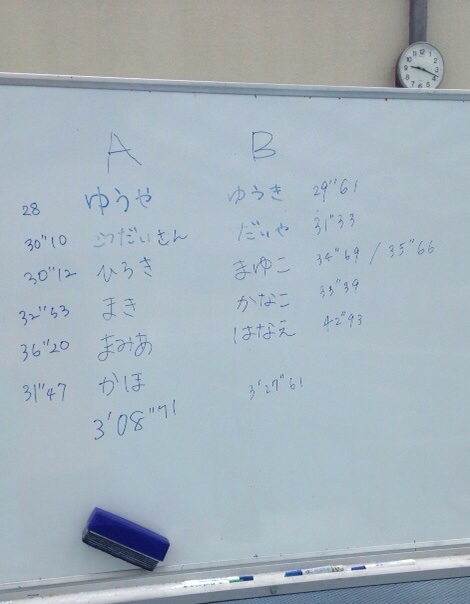 A B
28 ゆうや ゆうき 29"61
30"10 つだいさん だいや 31"33
30"12 ひろき まゆこ 34"69 / 35"66
32"53 まき かなこ 33"39
36"20 まみあ はなえ 42"93
31"47 かほ
3'08"71 3'27"61